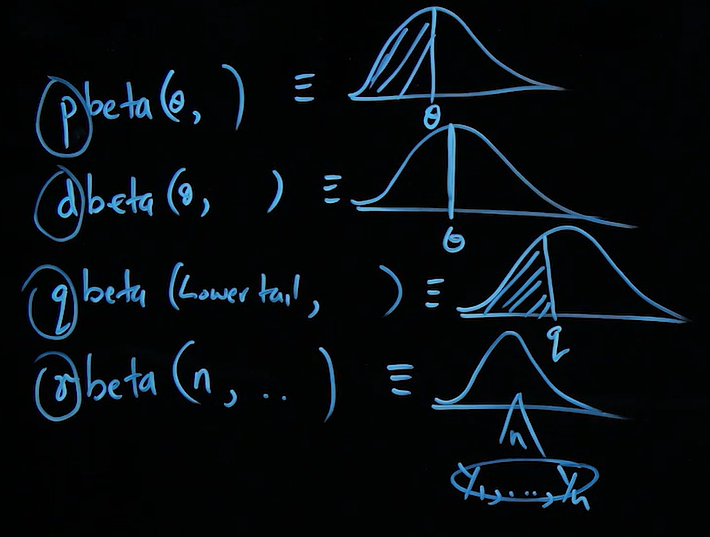 pbeta(θ, ) ≡
θ
dbeta(θ, ) ≡
θ
qbeta (Lowertail, ) ≡
q
rbeta (n, ..) ≡
n
Y1, ..., Yn